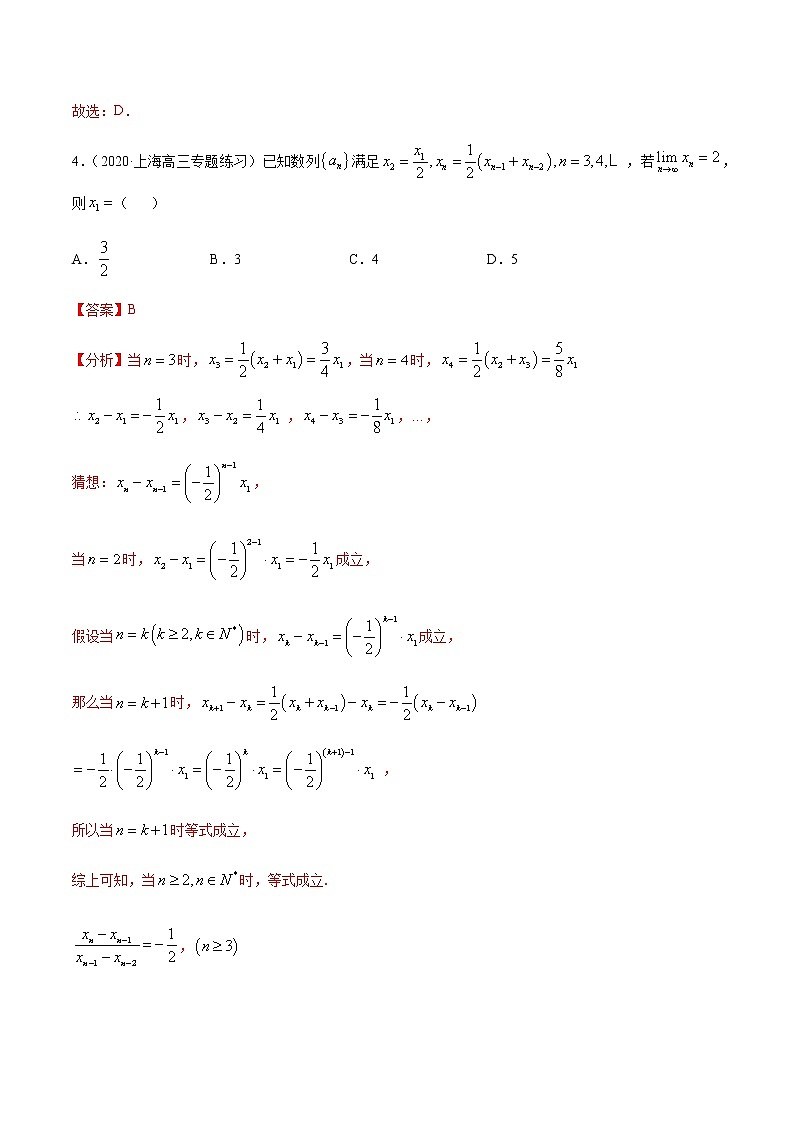 故选：D.
4.（2020·上海高三专题练习）已知数列{aₙ}满足 x₂ = x₁/2, xₙ = 1/2(xₙ₋₁ + xₙ₋₂), n = 3,4,L ，若 lim(n→∞) xₙ = 2，
则 x₁ =（ ）
A. 3/2 B.3 C.4 D.5
【答案】B
【分析】当 n = 3 时，x₃ = 1/2(x₂ + x₁) = 3/4 x₁，当 n = 4 时，x₄ = 1/2(x₂ + x₃) = 5/8 x₁
∴ x₂ − x₁ = −1/2 x₁，x₃ − x₂ = 1/4 x₁ ，x₄ − x₃ = −1/8 x₁，…，
猜想：xₙ − xₙ₋₁ = (−1/2)ⁿ⁻¹ x₁，
当 n = 2 时，x₂ − x₁ = (−1/2)²⁻¹ · x₁ = −1/2 x₁ 成立，
假设当 n = k(k ≥ 2, k ∈ N*) 时，xₖ − xₖ₋₁ = (−1/2)ᵏ⁻¹ · x₁ 成立，
那么当 n = k+1 时，xₖ₊₁ − xₖ = 1/2(xₖ + xₖ₋₁) − xₖ = −1/2(xₖ − xₖ₋₁)
= −1/2 · (−1/2)ᵏ⁻¹ · x₁ = (−1/2)ᵏ · x₁ = (−1/2)⁽ᵏ⁺¹⁾⁻¹ · x₁ ，
所以当 n = k+1 时等式成立，
综上可知，当 n ≥ 2, n ∈ N* 时，等式成立.
(xₙ − xₙ₋₁)/(xₙ₋₁ − xₙ₋₂) = −1/2，(n ≥ 3)